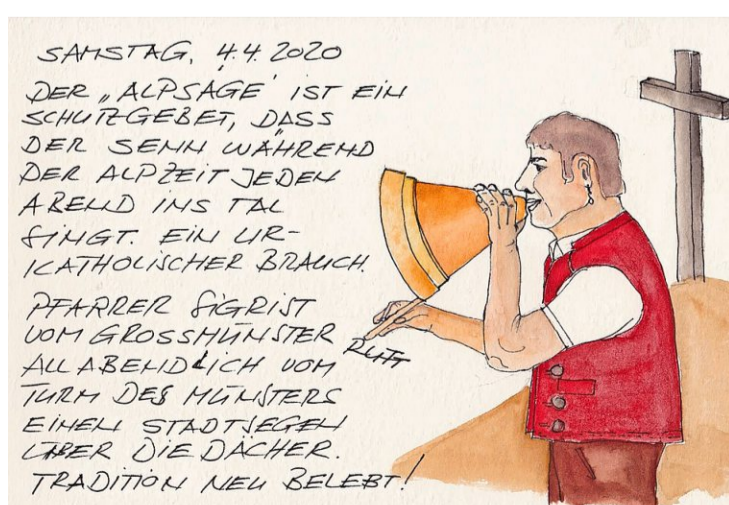 SAMSTAG, 4.4.2020
DER „ALPSÄGE' IST EIN
SCHUTZGEBET, DASS
DER SENN WÄHREND
DER ALPZEIT JEDEN
ABEND INS TAL
SINGT. EIN UR-
KATHOLISCHER BRAUCH.
PFARRER SIGRIST
VOM GROSSMÜNSTER RUFT
ALLABENDLICH VOM
TURM DES MÜNSTERS
EINEN STADTSEGEN
ÜBER DIE DÄCHER.
TRADITION NEU BELEBT!